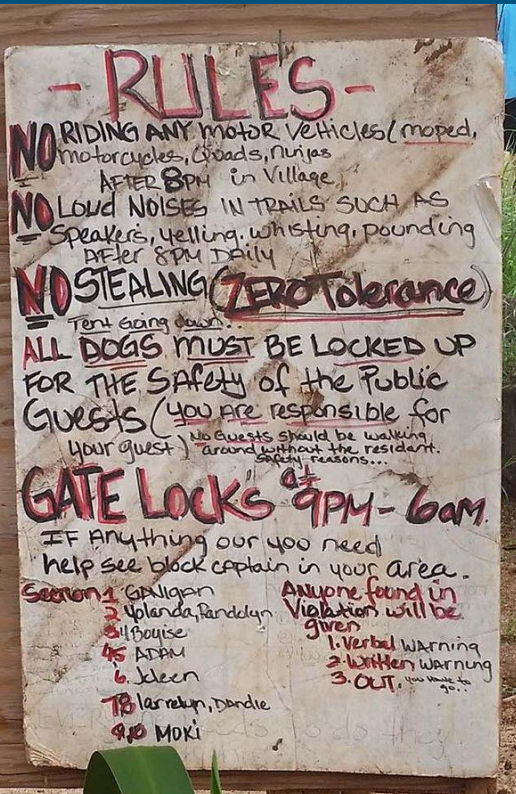 - RULES -
NO RIDING ANY motor Vehicles (moped,
motorcycles, Quads, Ninjas
AFTER 8PM in Village
NO LOUD NOISES IN TRAILS SUCH AS
Speakers, yelling, whisting, pounding
AFTER 8PM DAILY
NO STEALING (ZERO Tolerance)
Tent Going down..
ALL DOGS MUST BE LOCKED UP
FOR THE SAFety of the Public
Guests (you are responsible for
your guest) No Guests should be walking
around without the resident.
Safety reasons...
GATE LOCKS at 9PM - 6am.
IF Anything our you need
help see block captain in your area.
Section 1
2 Yolanda,
Boyise
45 ADAM
6.
78 Larrelyn, Dandie
9,10 MOKI
Anyone found in
Violation will be
given
1. Verbal WARNING
2. Written WARNING
3. OUT, you have to
go..